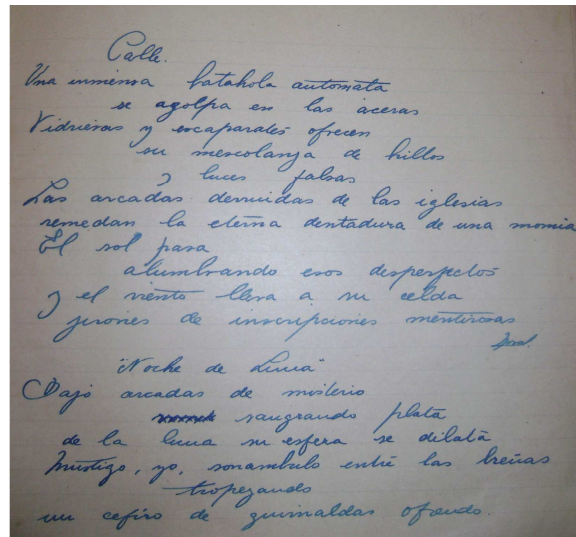 Calle.
Una inmensa batahola automata
se agolpa en las aceras
Vidrieras y escaparates ofrecen
su mescolanza de brillos
y luces falsas
Las arcadas derruidas de las iglesias
remedan la eterna dentadura de una momia
El sol pasa
alumbrando esos desperfectos
y el viento lleva a su celda
jirones de inscripciones mentirosas
"Noche de Luna"
Bajo arcadas de misterio
sangrando plata
de la luna su esfera se dilata
Mustigo, yo, sonambulo entre las breñas
tropezando
un cefiro de guirnaldas